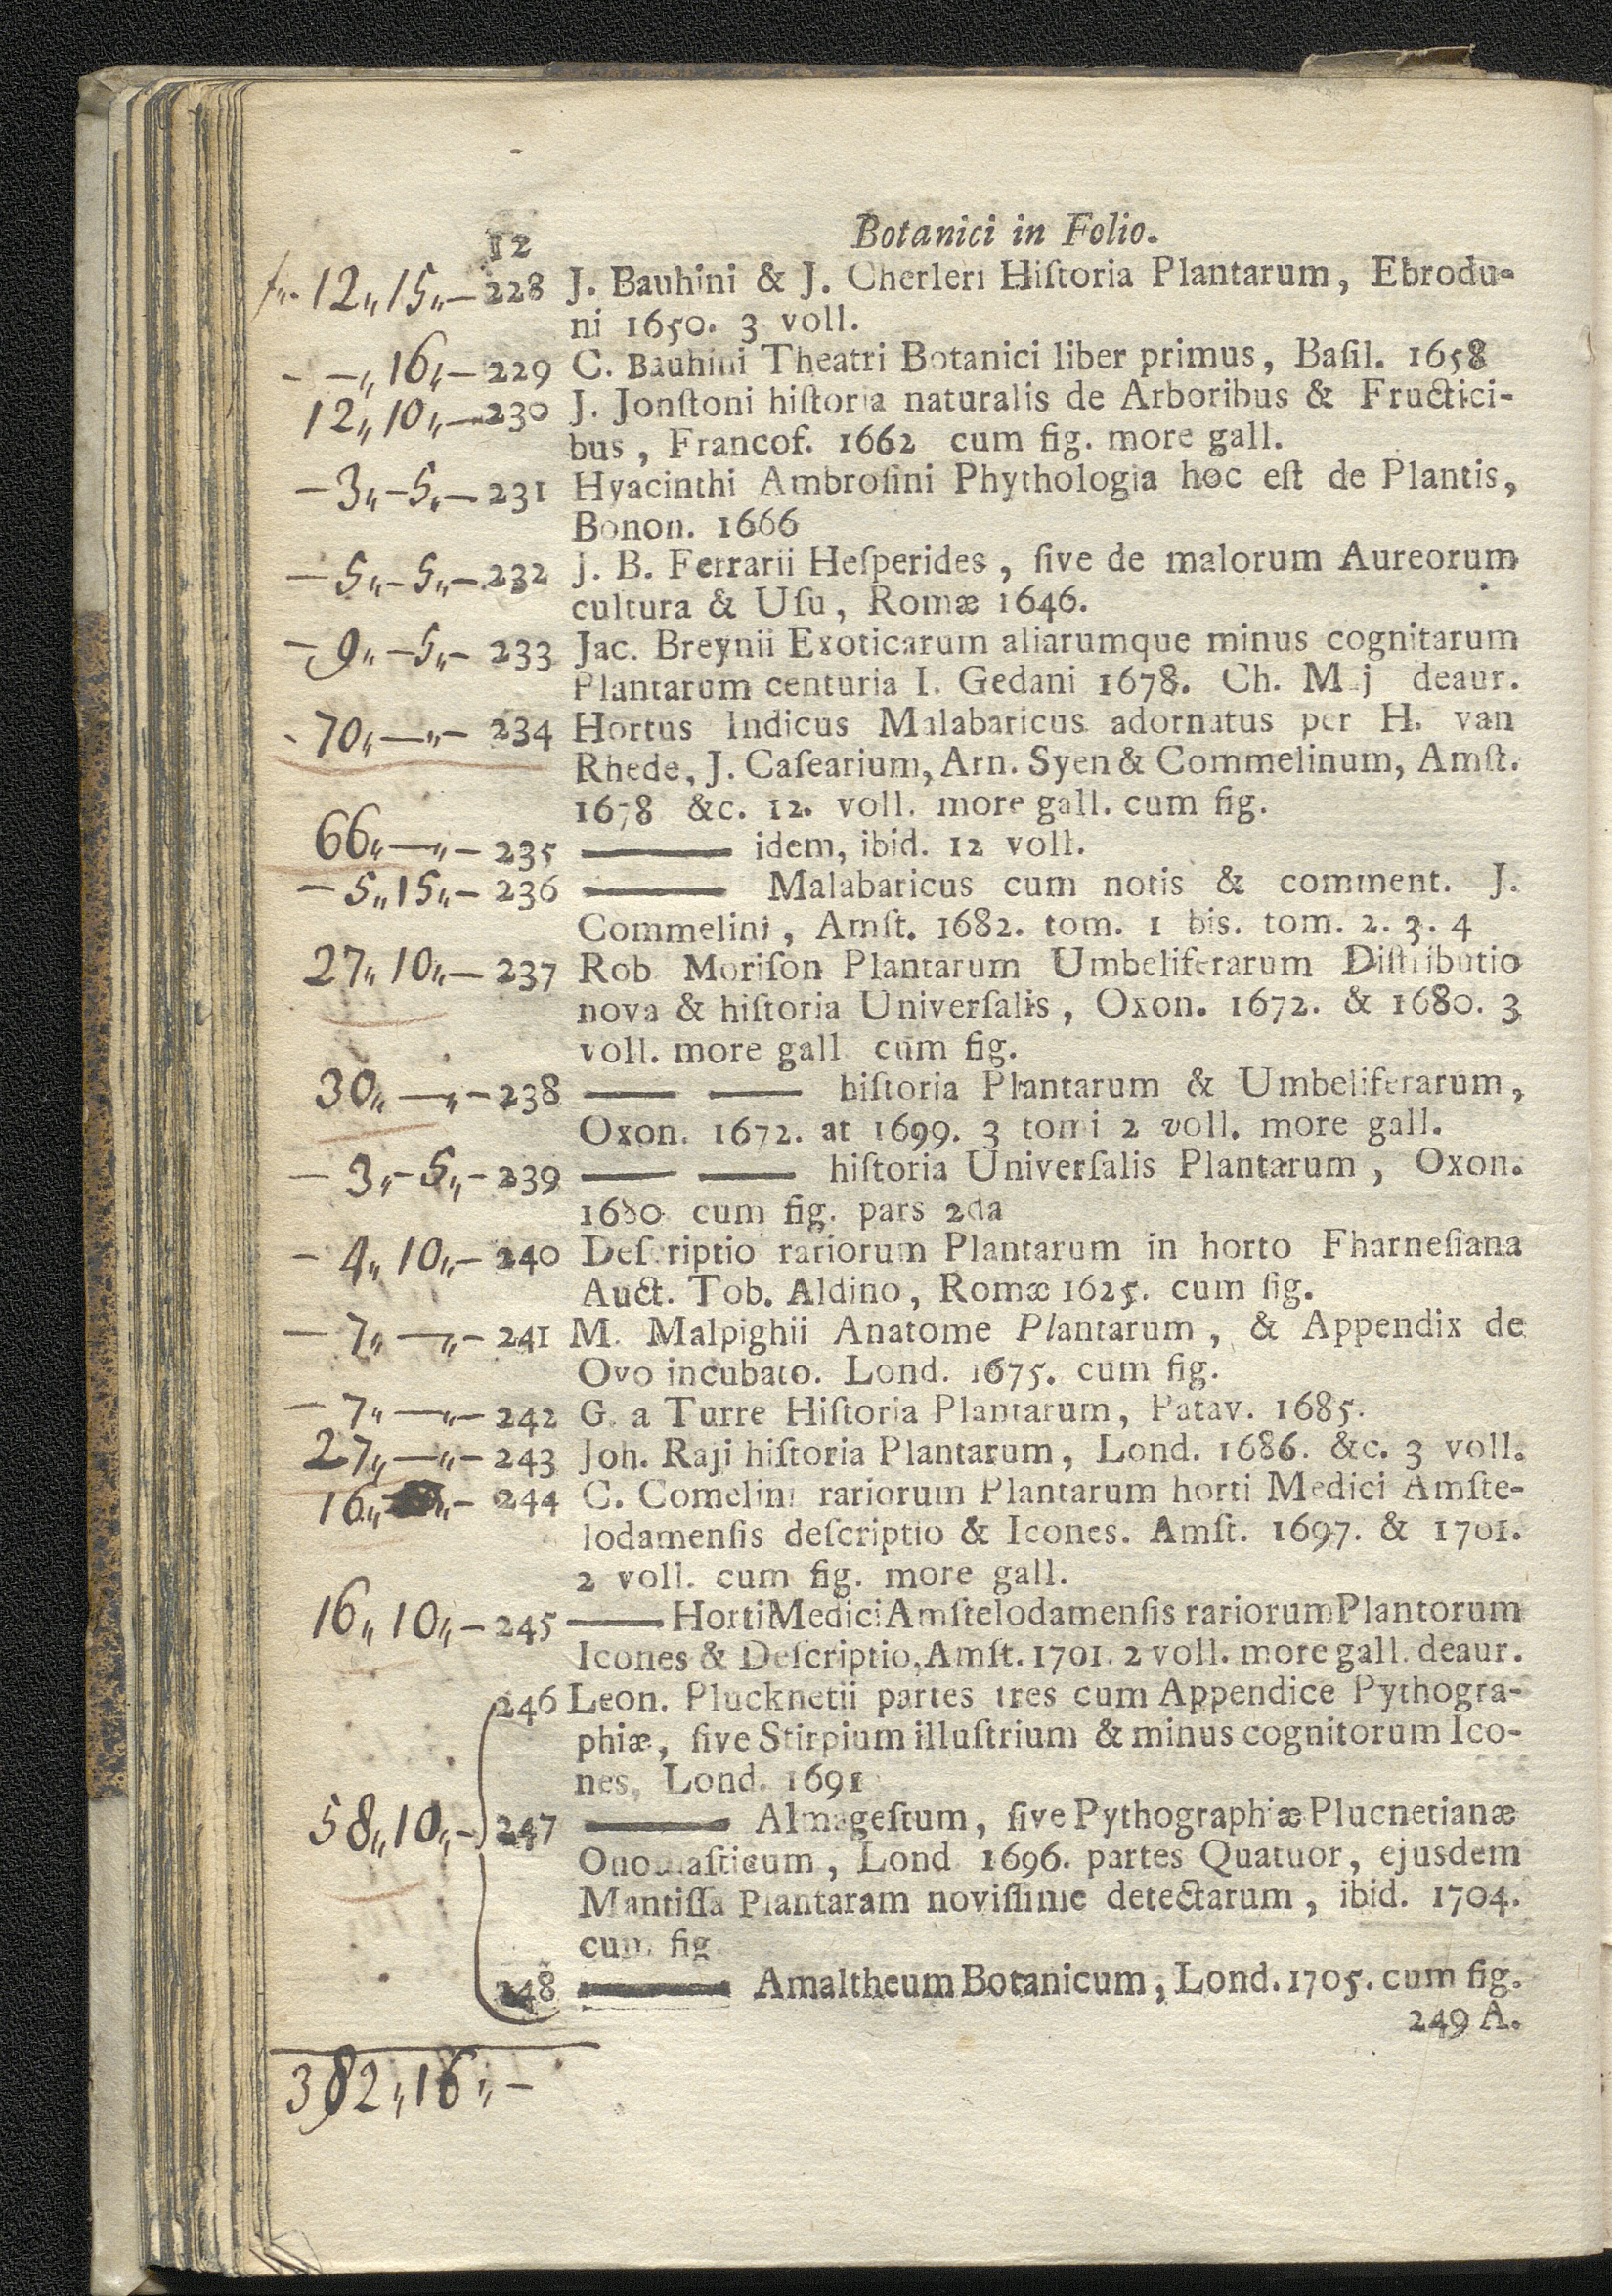 12 Botanici in Folio.
f„. 12„ 15„— 228 J. Bauhini & J. Cherleri Hiſtoria Plantarum, Ebrodu-
ni 1650. 3 voll.
- —„ 16„— 229 C. Bauhini Theatri Botanici liber primus, Baſil. 1658
12„ 10„— 230 J. Jonſtoni hiſtoria naturalis de Arboribus & Fructici-
bus, Francof. 1662 cum fig. more gall.
— 3„ -5„— 231 Hyacinthi Ambroſini Phythologia hoc eſt de Plantis,
Bonon. 1666
— 5„ -5„— 232 J. B. Ferrarii Heſperides, ſive de malorum Aureorum
cultura & Uſu, Romæ 1646.
— 9„ -5„— 233 Jac. Breynii Exoticarum aliarumque minus cognitarum
Plantarum centuria I. Gedani 1678. Ch. Maj deaur.
- 70„ —„— 234 Hortus Indicus Malabaricus adornatus per H. van
Rhede, J. Caſearium, Arn. Syen & Commelinum, Amſt.
1678 &c. 12. voll. more gall. cum fig.
66„ —„— 235 ——— idem, ibid. 12 voll.
— 5„ 15„— 236 ——— Malabaricus cum notis & comment. J.
Commelini, Amſt. 1682. tom. 1 bis. tom. 2. 3. 4
27„ 10„— 237 Rob Moriſon Plantarum Umbeliferarum Diſtributio
nova & hiſtoria Univerſalis, Oxon. 1672. & 1680. 3
voll. more gall cum fig.
30„ —„— 238 —— —— hiſtoria Plantarum & Umbeliferarum,
Oxon. 1672. at 1699. 3 tomi 2 voll. more gall.
— 3„- 5„— 239 —— —— hiſtoria Univerſalis Plantarum, Oxon.
1680 cum fig. pars 2da
— 4„ 10„— 240 Deſcriptio rariorum Plantarum in horto Fharneſiana
Auct. Tob. Aldino, Romæ 1625. cum fig.
— 7„ —„— 241 M. Malpighii Anatome Plantarum, & Appendix de
Ovo incubato. Lond. 1675. cum fig.
— 7„ —„— 242 G. a Turre Hiſtoria Plantarum, Patav. 1685.
27„ —„— 243 Joh. Raji hiſtoria Plantarum, Lond. 1686. &c. 3 voll.
16„ „— 244 C. Comelini rariorum Plantarum horti Medici Amſte-
lodamenſis deſcriptio & Icones. Amſt. 1697. & 1701.
2 voll. cum fig. more gall.
16„ 10„— 245 —— Horti Medici Amſtelodamenſis rariorum Plantorum
Icones & Deſcriptio, Amſt. 1701. 2 voll. more gall. deaur.
246 Leon. Plucknetii partes tres cum Appendice Pythogra-
phiæ, ſive Stirpium illuſtrium & minus cognitorum Ico-
nes, Lond. 1691
58„ 10„— 247 ——— Almageſtum, ſive Pythographiæ Plucnetianæ
Onomaſticum, Lond 1696. partes Quatuor, ejusdem
Mantiſſa Plantaram noviſſime detectarum, ibid. 1704.
cum fig.
248 ——— Amaltheum Botanicum, Lond. 1705. cum fig.
249 A.
382„ 16„—